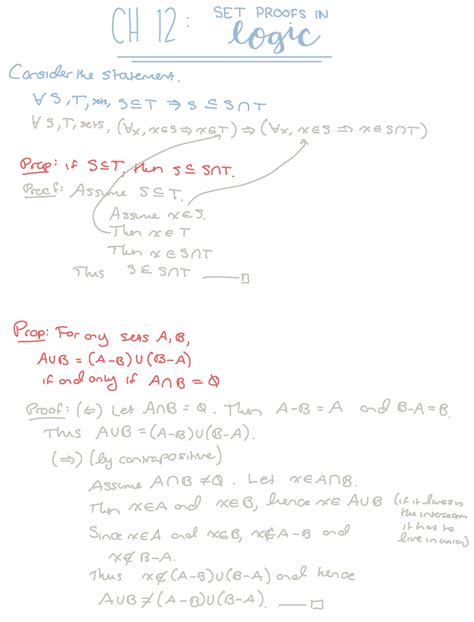 CH 12: SET PROOFS IN logic
Consider the statement.
∀ S,T, sets, S⊆T ⇒ S ⊆ S∩T
∀ S,T, sets, (∀x, x∈S ⇒ x∈T) ⇒ (∀x, x∈S ⇒ x∈S∩T)
Prop: if S⊆T, then S⊆ S∩T.
Proof: Assume S⊆T.
Assume x∈S.
Then x∈T
Then x∈S∩T
Thus S⊆ S∩T ——□
Prop: For any sets A,B,
A∪B = (A-B)∪(B-A)
if and only if A∩B = ∅
Proof: (⇐) Let A∩B = ∅. Then A-B = A and B-A = B.
Thus A∪B = (A-B)∪(B-A).
(⇒) (by contrapositive)
Assume A∩B ≠ ∅. Let x∈A∩B.
Then x∈A and x∈B, hence x∈ A∪B (if it lives in
the intersection
it has to
live in union)
Since x∈A and x∈B, x∉A-B and
x∉B-A.
Thus x∉(A-B)∪(B-A) and hence
A∪B ≠ (A-B)∪(B-A). ——□